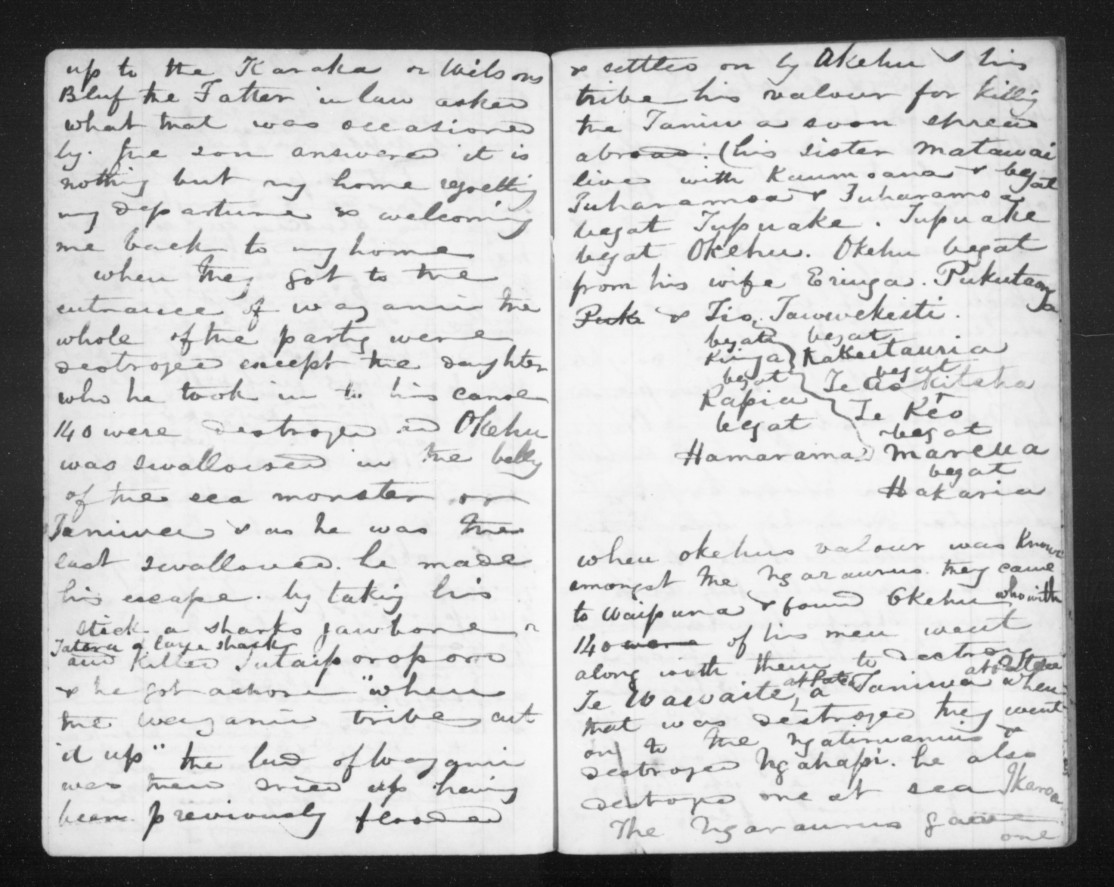 up to the Karaka or Wilsons
Bluf the Father in law asked
what that was occasioned
by. the son answered it is
nothing but my home regretting
my departure & welcoming
me back to my home
when they got to the
entrance of waganui the
whole of the party were
destroyed except the daughter
who he took in to his canoe
140 were destroyed and Okehu
was swallowed in the belly
of the sea monster or
Taniwa & as he was the
last swallowed. he made
his escape. by taking his
stick a sharks jawbone
Tatera a large shark
and killed Tutaiporoporo
& he got ashore "when
the waganui tribe cut
it up" the land of Waganui
was then dried up having
been previously flooded
& settled on by Okehu & his
tribe his valour for killig
the Taniwa soon spread
abroad. (his sister Matawai
lived with Kaumoana & begat
Tuharamoa & Tuharamoa
begat Tupuake. Tupuake
begat Okehu. Okehu begat
from his wife Eringa. Pukutam
& Tio. Tawekeiti.
begat begat
Ringa Kakeitauria
begat begat
Rapia
begat Te Keo
begat
Hamarama. Mareua
begat
Hakaria
when okehus valour was known
amongst the Ngaraurus. they came
to Waipuna & found Okehu who with
140 of his men went
along with them to destroy
Te Waiwaite, at Patea a Taniwa when
that was destroyed they went
on to the &
destroyed Ngahapi. he also
destroyed one at sea Ikaroa
The Ngaraurus gave
one